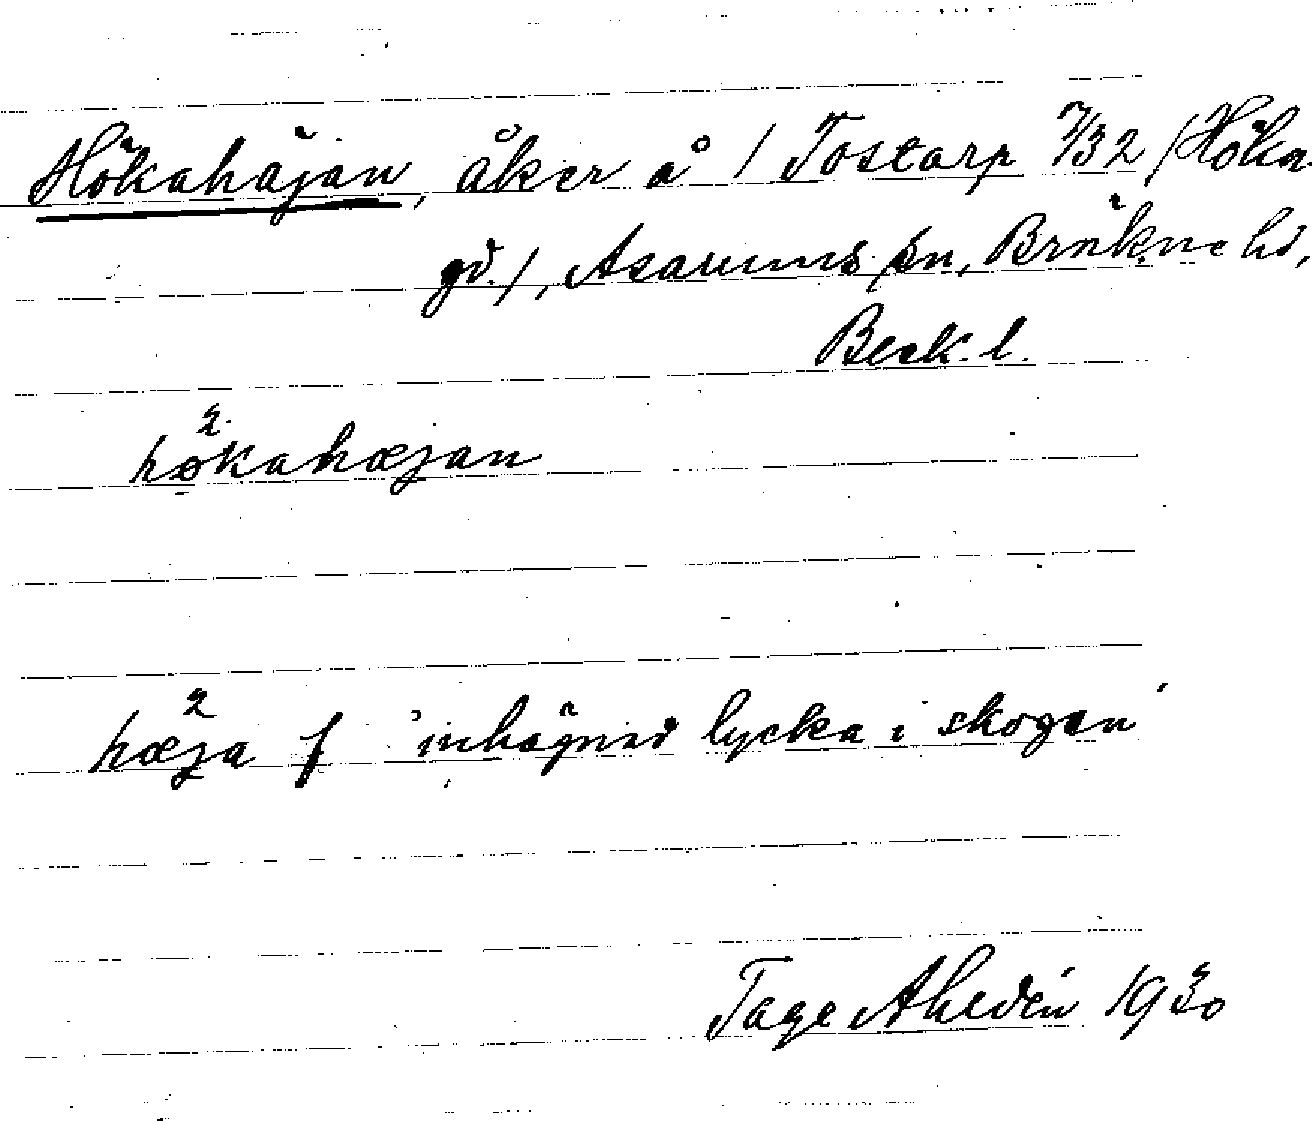 Hökahäjan, åker å 1 Tostarp 7/32 (Höka
gd.), Asarums sn, Bräkne hd,
Blek. l.
hökahæjan
2
hæja f 'inhägnad lycka i skogen'
2
Tage Ahldén 1930